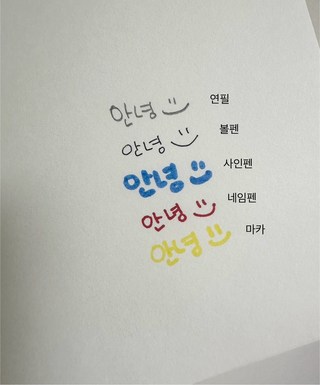 안녕 연필
안녕 볼펜
안녕 사인펜
안녕 네임펜
안녕 마카